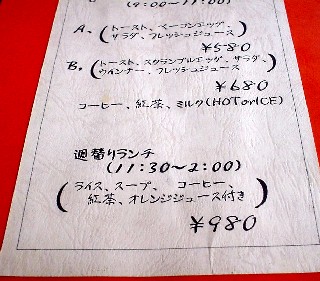 (8:00〜11:00)
A. (トースト、ベーコンエッグ、
サラダ、フレッシュジュース)
¥580
B. (トースト、スクランブルエッグ、サラダ、
ウインナー、フレッシュジュース)
¥680
コーヒー、紅茶、ミルク(HOTorICE)
週替りランチ
(11:30〜2:00)
(ライス、スープ、 コーヒー、
紅茶、オレンジジュース付き)
¥980